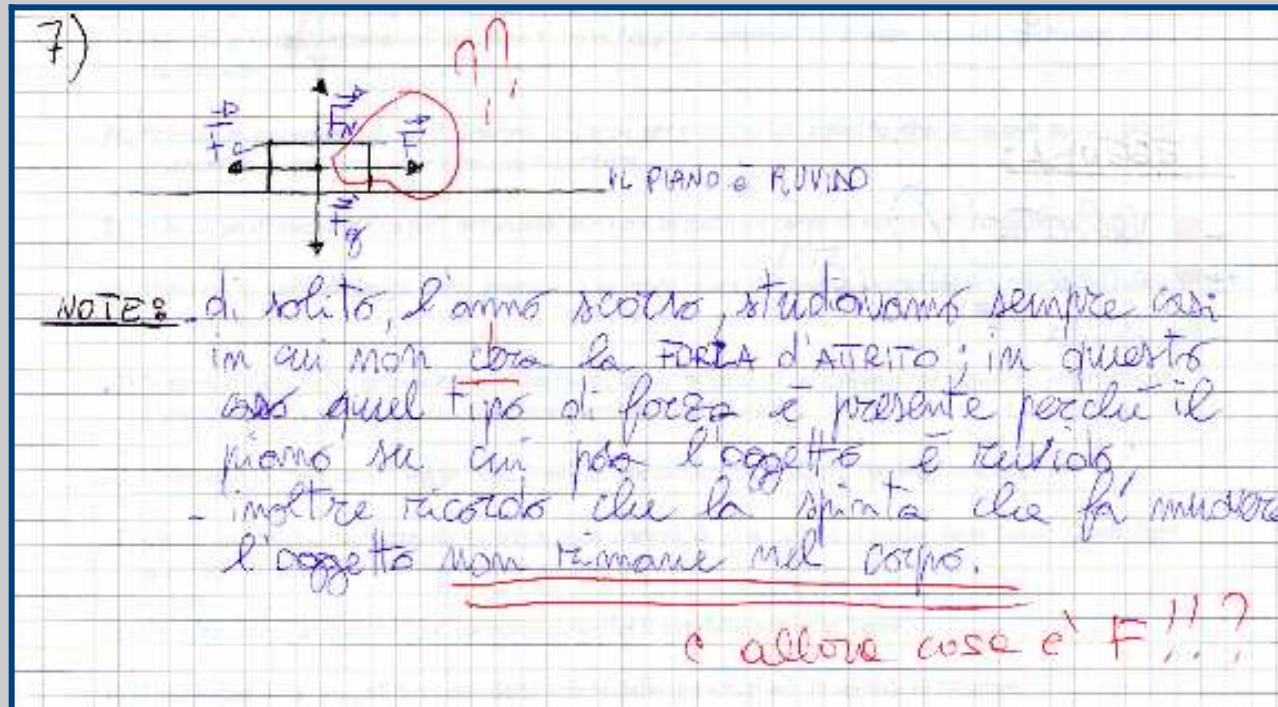 7)
??
Fa FN F
IL PIANO è RUVIDO
Fg
NOTE: - di solito, l'anno scorso, studiavamo sempre casi
in cui non cera la FORZA d'ATTRITO; in questo
caso quel tipo di forza è presente perché il
piano su cui posa l'oggetto è ruvido;
- inoltre ricordo che la spinta che fa muovere
l'oggetto non rimane nel corpo.
e allora cosa e' F!!?